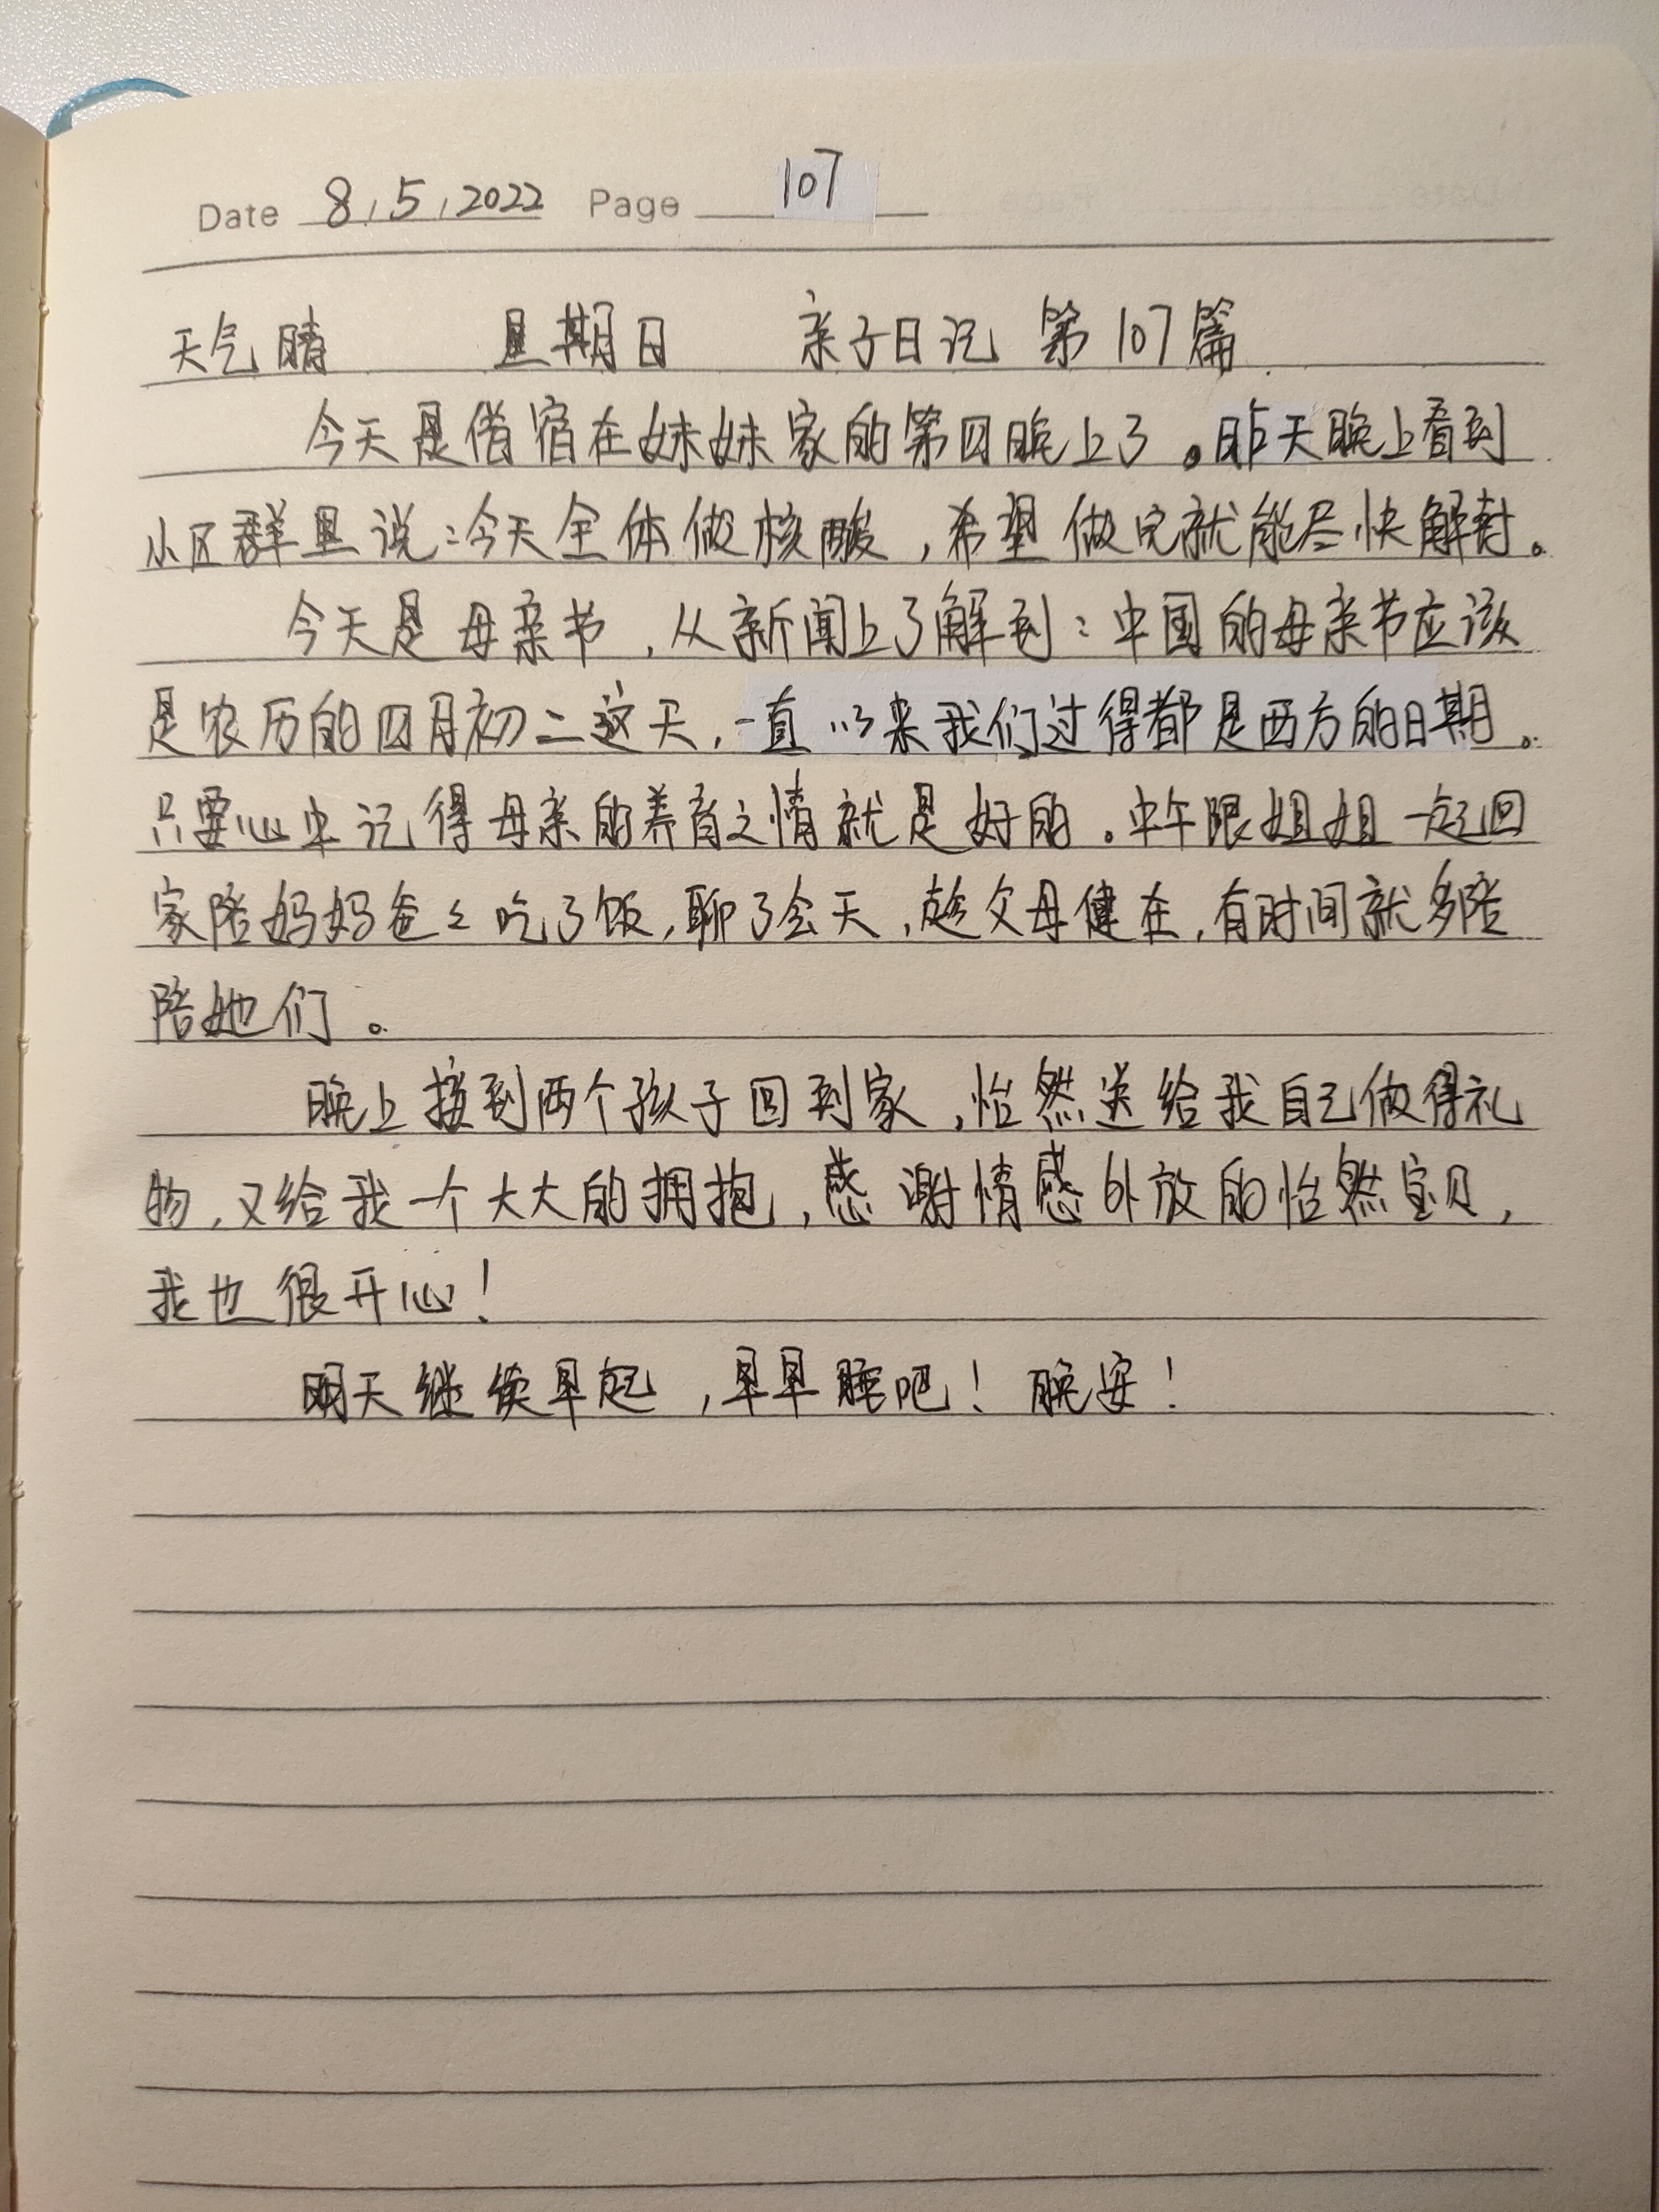 Date 8.5.2022 Page 107
天气晴 星期日 亲子日记 第107篇
今天是借宿在妹妹家的第四晚上了。昨天晚上看到
小区群里说:今天全体做核酸,希望做完就能尽快解封。
今天是母亲节,从新闻上了解到:中国的母亲节应该
是农历的四月初二这天,一直以来我们过得都是西方的日期。
只要心中记得母亲的养育之情就是好的。中午跟姐姐一起回
家陪妈妈爸々吃了饭,聊了会天,趁父母健在,有时间就多陪
陪她们。
晚上接到两个孩子回到家,怡然送给我自己做得礼
物,又给我一个大大的拥抱,感谢情感外放的怡然宝贝,
我也很开心!
明天继续早起,早早睡吧!晚安!